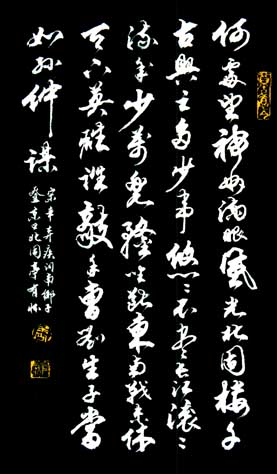 何處望神州滿眼風光北固樓千
古興亡多少事悠〻不盡長江滚〻
流年少萬兜鍪坐斷東南戰未休
天下英雄誰敵手曹劉生子當
如孫仲謀
宋辛弃疾词南鄉子
登京口北固亭有怀